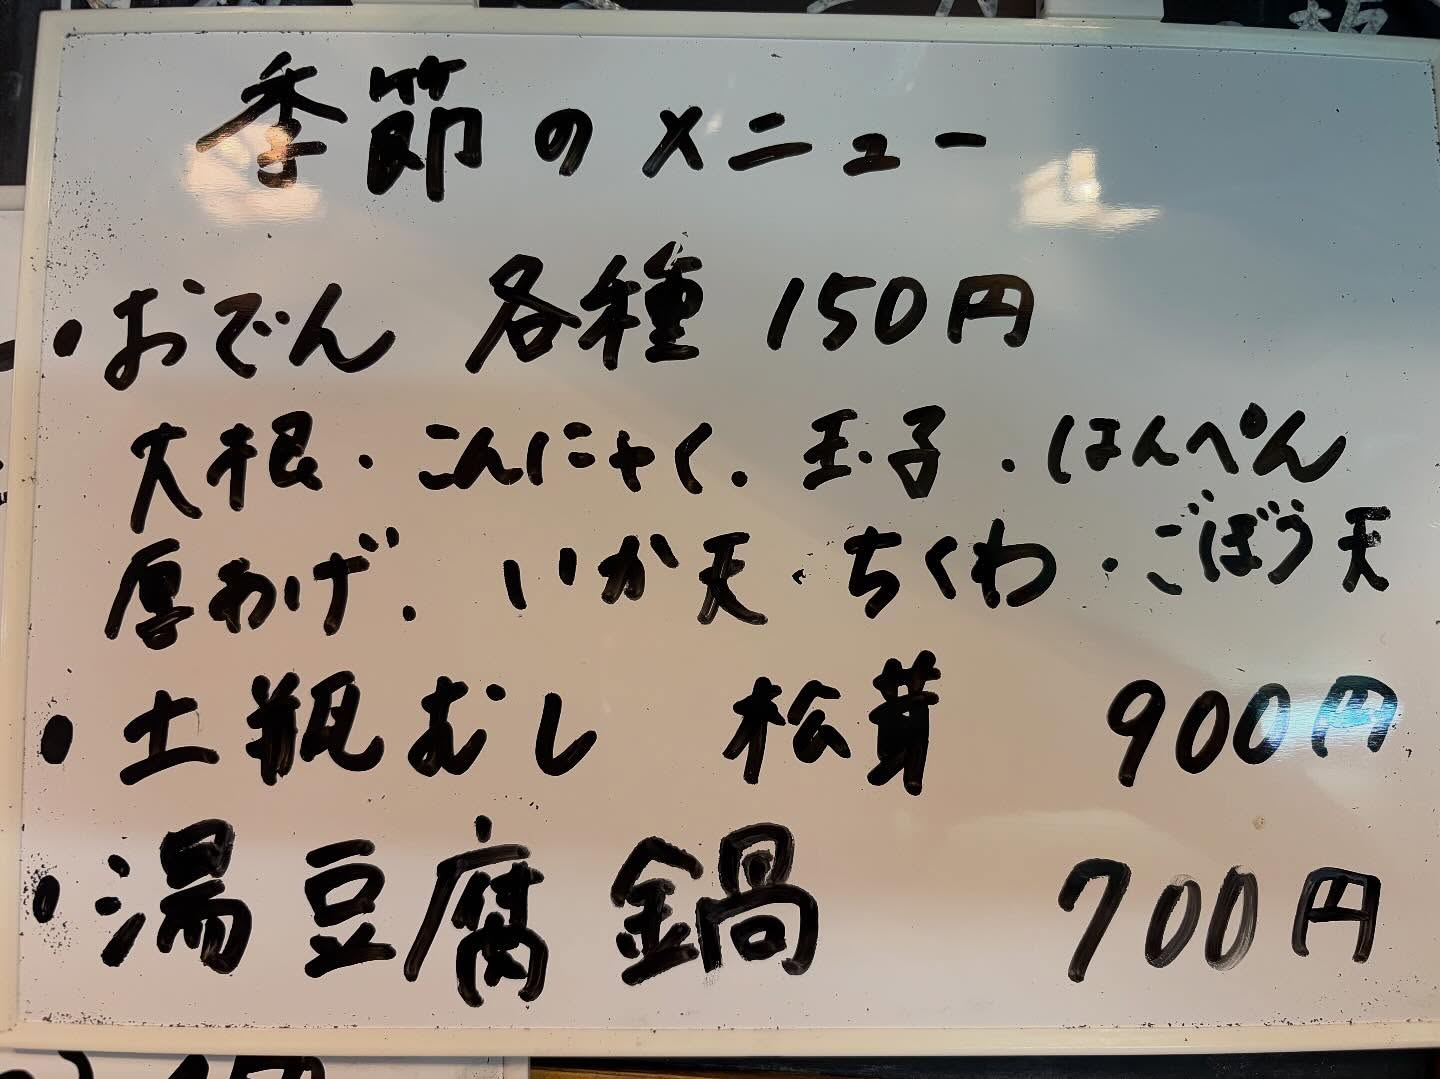 季節のメニュー
・おでん 各種 150円
大根・こんにゃく・玉子・はんぺん
厚あげ・いか天・ちくわ・ごぼう天
・土瓶むし 松茸 900円
・湯豆腐鍋 700円